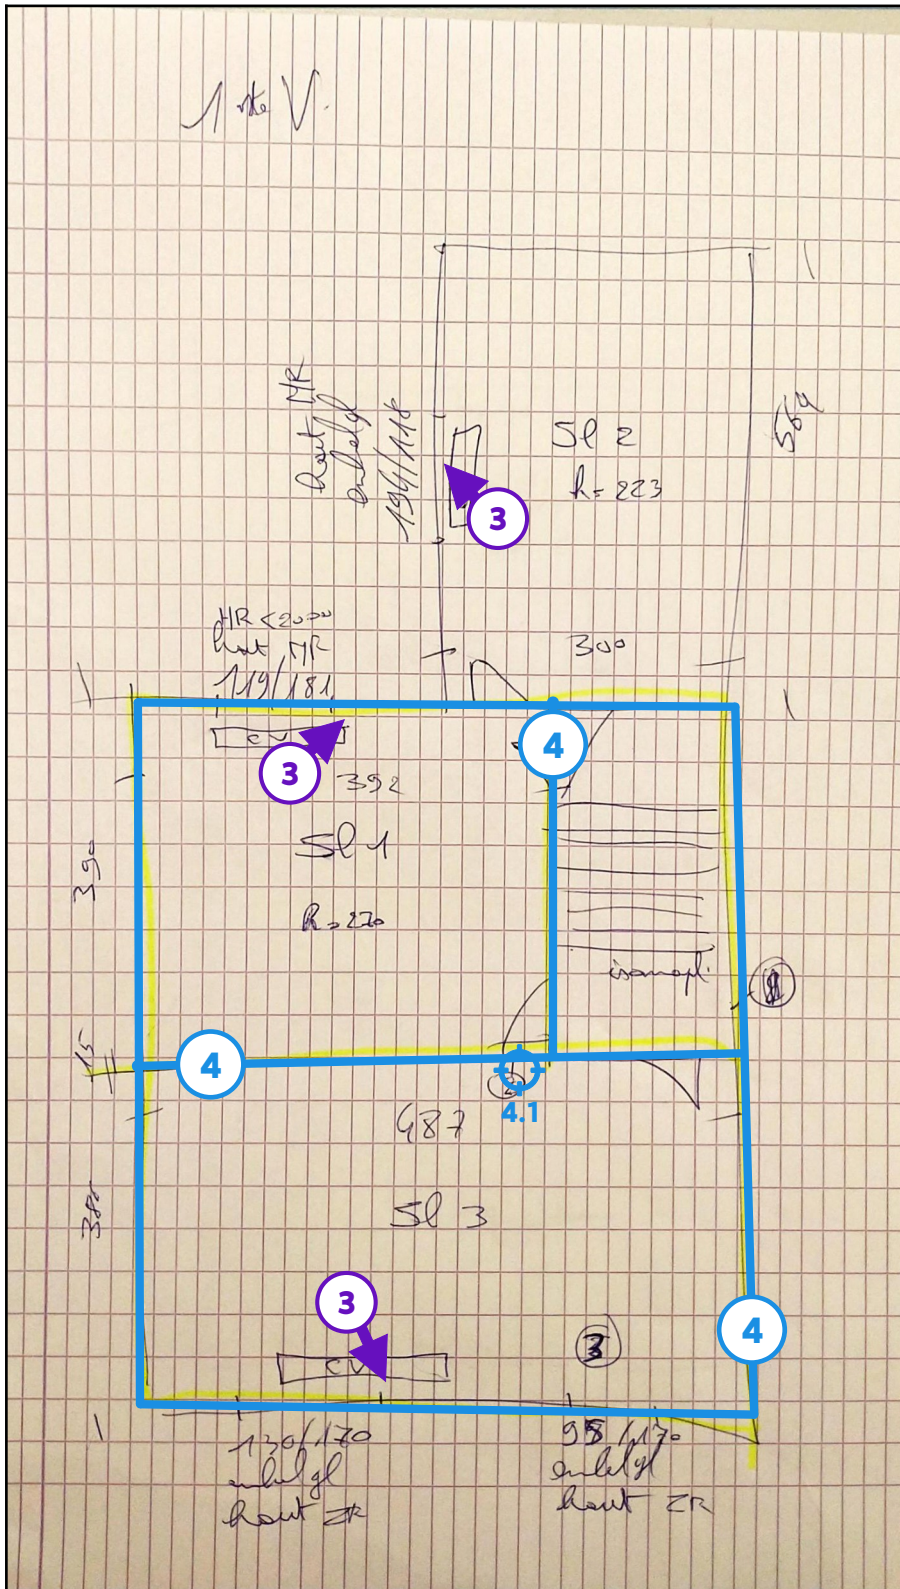 1ste V.
hout HR
enkelgl
194/118
Sl 2
h= 223
564
3
HR <2000
hout HR
119/181
300
CV
4
3
392
Sl 1
h= 270
390
isomopl.
15
4
2
4.1
487
Sl 3
388
3
3
4
CV
130/170
enkelgl
hout ZR
98/170
enkelgl
hout ZR